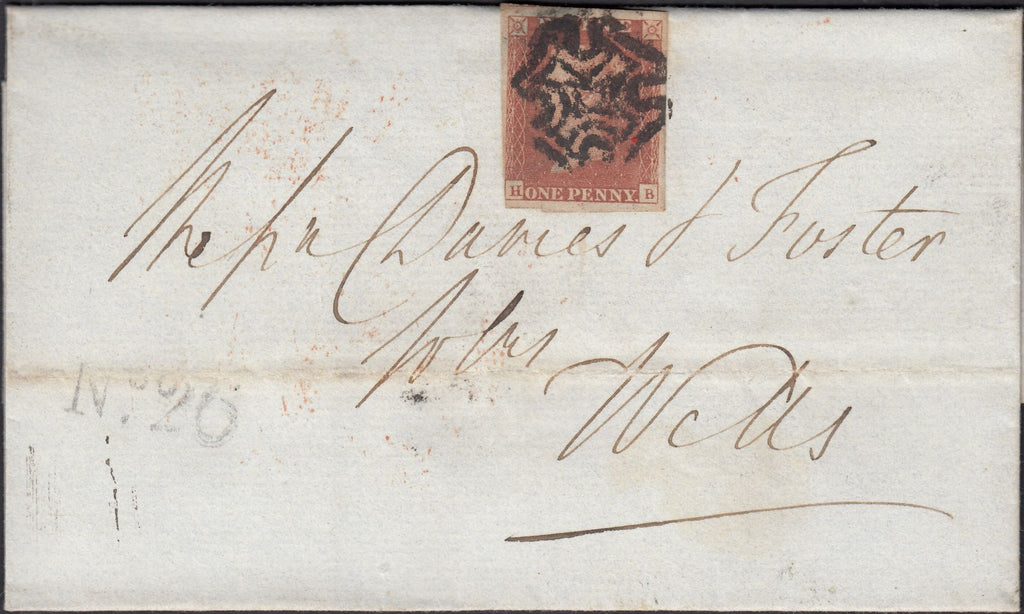 H ONE PENNY. B
Messrs Davies & Foster
Solrs
Wells
No. 20